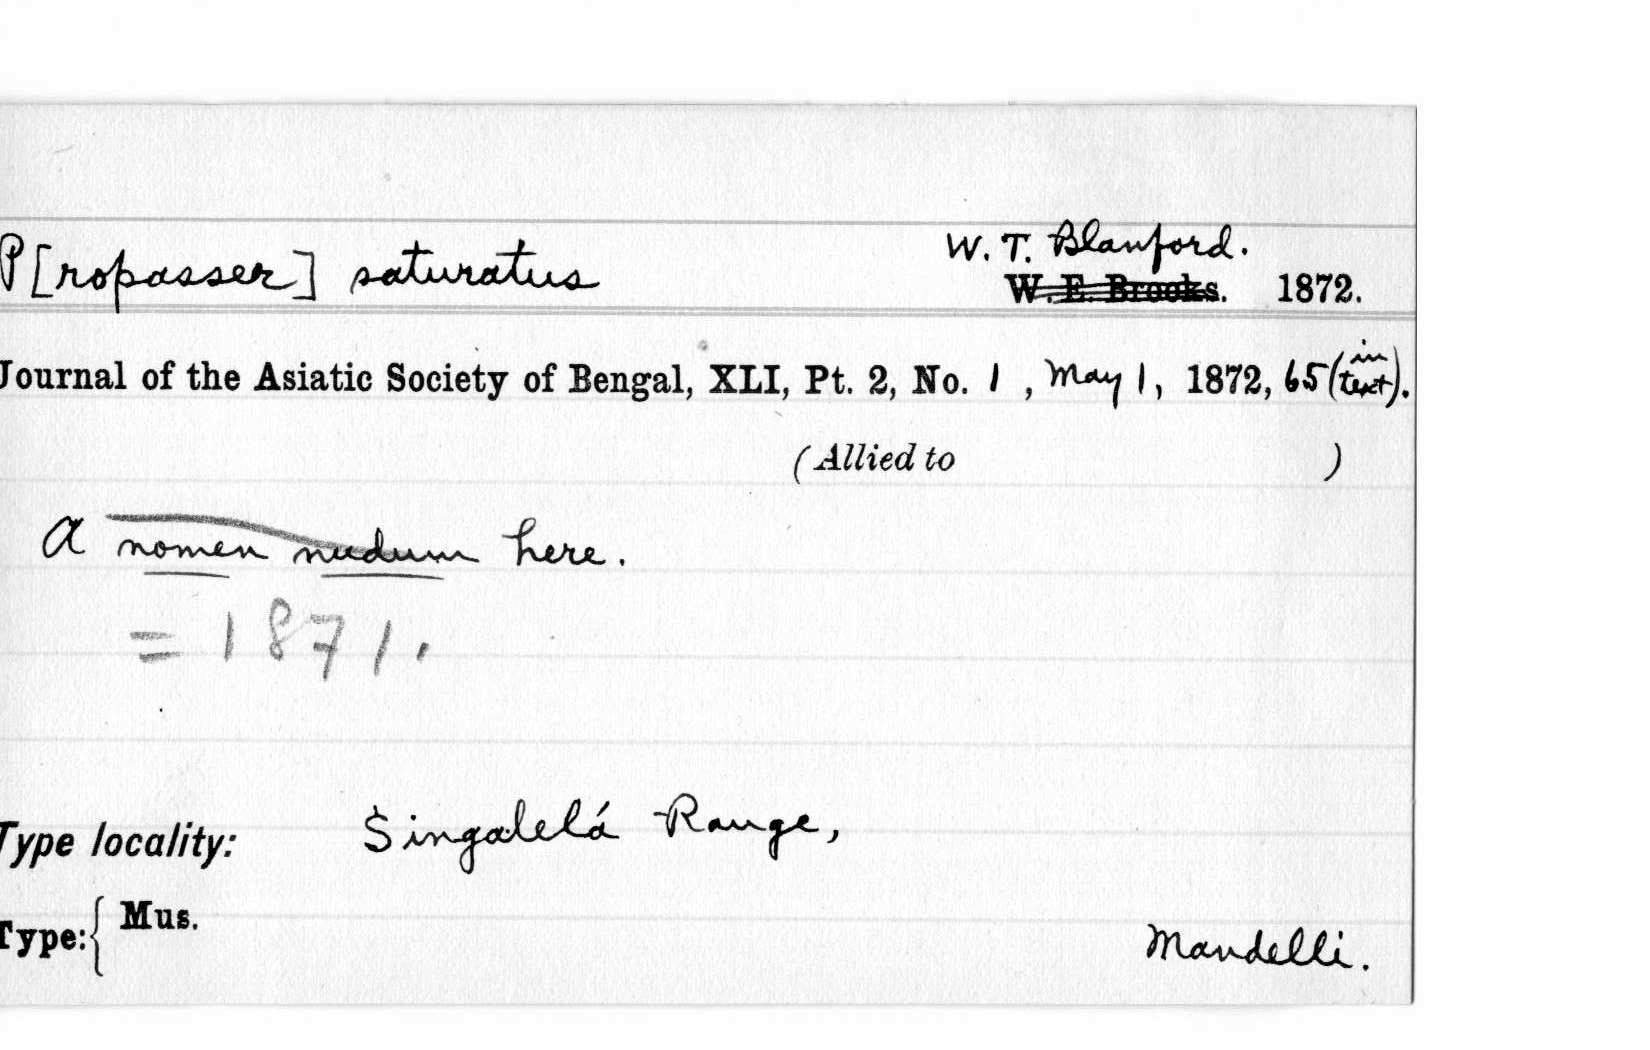 P[ropasser] saturatus
W. T. Blanford.
W. E. Brooks. 1872.
Journal of the Asiatic Society of Bengal, XLI, Pt. 2, No. 1, May 1, 1872, 65 (in text).
(Allied to )
A nomen nudum here.
= 1871.
Type locality: Singalelá Range,
Type: { Mus.
Mandelli.